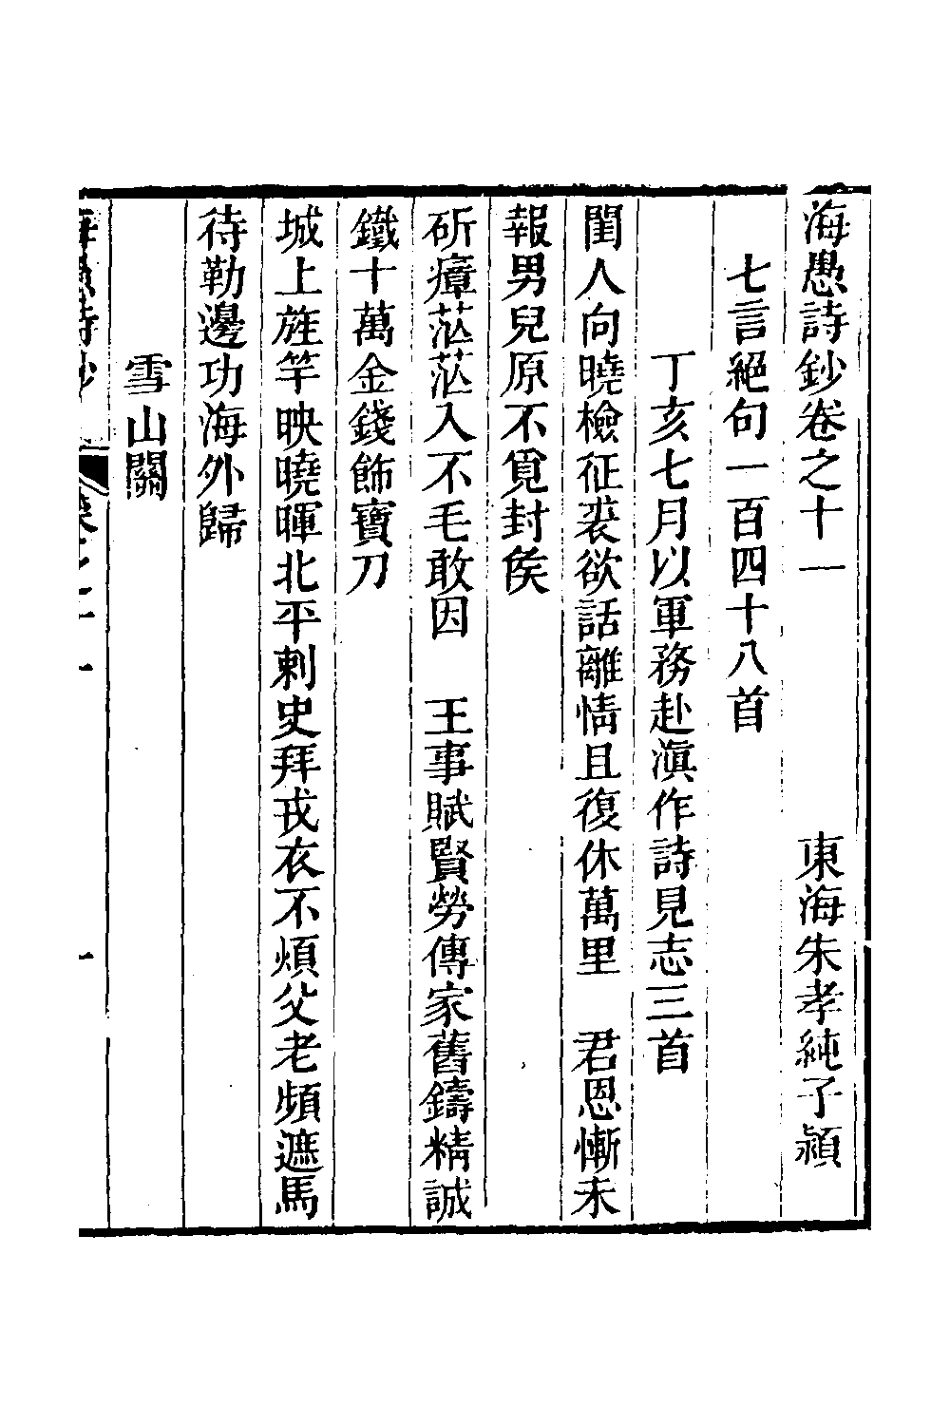 海愚詩鈔卷之十一　東海朱孝純子潁
七言絕句一百四十八首
丁亥七月以軍務赴滇作詩見志三首
閨人向曉檢征裘欲話離情且復休萬里　君恩慚未
報男兒原不覓封侯
斫瘴茫茫入不毛敢因　王事賦賢勞傳家舊鑄精誠
鐵十萬金錢飾寶刀
城上旌竿映曉暉北平刺史拜戎衣不煩父老頻遮馬
待勒邊功海外歸
雪山關
海愚詩鈔　卷之十一　一